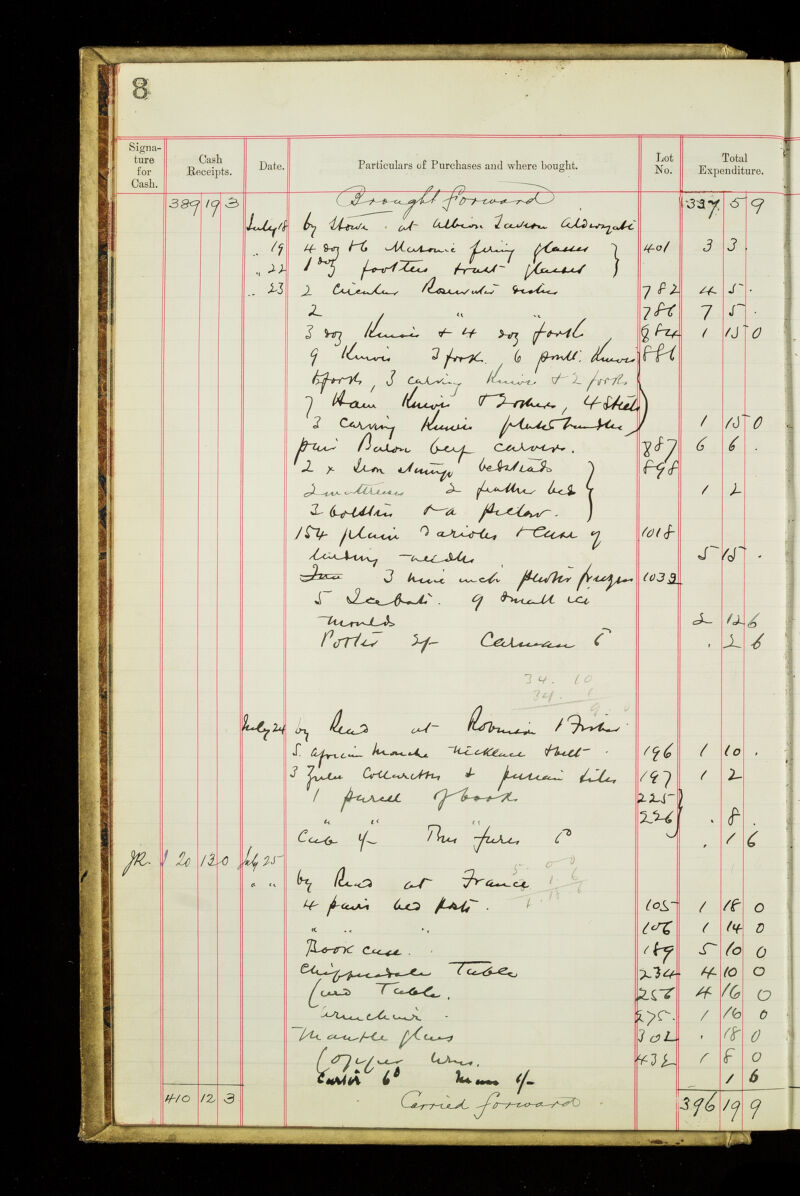 8
Signature for Cash. Cash Receipts. Date. Particulars of Purchases and where bought. Lot No. Total Expenditure.
389 19 3 Brought forward 337 5 9
July 18 by Stowe . at Albion Tavern Aldersgate
" 19 4 doz & 6 Masonic firing glasses } 401 3 3 .
" 22 1 doz footless trust glasses }
" 23 2 Circular Rosewater dishes 782 4 5 .
2 " " 786 7 5 .
3 doz Knives & 4 doz forks 884 1 15 0
9 Knives 3 fork. 6 small. Knives 886
forks, 3 carving Knives & 2 forks
7 Ham Knives & 2 others, 4 Steels
3 carving Knives plated handles 1 15 0
pair Baron beef carvers. 887 6 6 .
2 x Iron stump bedsteads 898
2 mattresses 2 feather bed 1 2
3 bolsters & a pillow.
154 plain Darioles & Case of 1018
larding needles 5 15 .
3 nine inch pewter freezers 1032
5 Ice 9 small ice
moulds 2 12 6
Porter 2/- Carman 6 . 2 6
34. 10
34. 1
9 0
July 24 by Read at Robinson & Fisher
5. African necklace & belt . 196 1 10 .
3 Zulu Collarettes & persian tiles 197 1 2
1 parcel of books 225
" " " 226 . 8 .
Cab 1/- Bus fares 6d . 1 6
JR. 20 13 0 July 25
" " by Read at France
5. 0 0
1. 6
4 pairs bed posts . 105 1 18 0
" " " 106 1 14 0
Book case . . 189 5 10 0
Chippendale Table 234 4 10 0
Card Table . 256 4 16 0
armchair . 275. 1 16 0
Mantle glass 302 . 18 0
Copper Urns. 432 1 8 0
Carter 6d Man 1/- 1 6
410 12 3 Carried forward 396 19 9